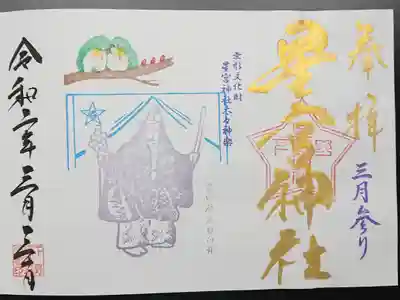 奉拝
三月参り
星宮神社
無形文化財
星宮神社太々神楽
令和二年三月三日